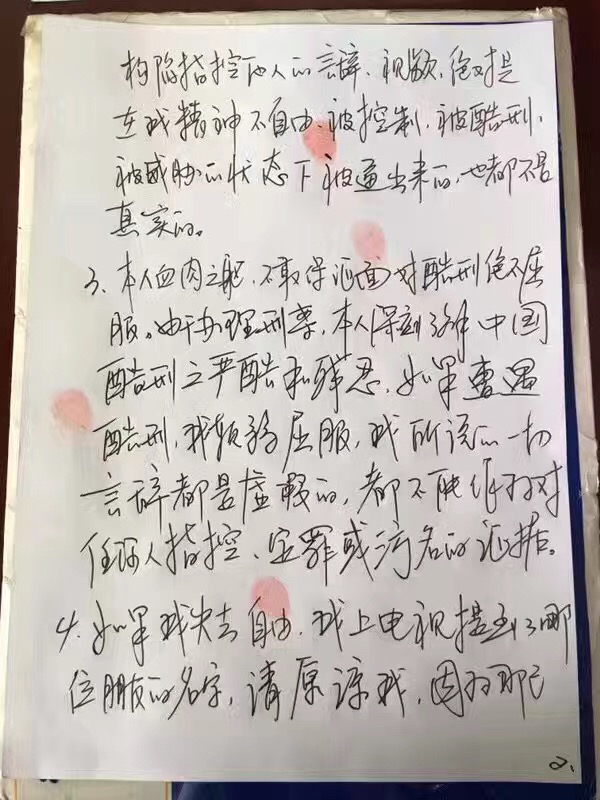 构陷指控他人的言辞、视频,绝对是
在我精神不自由、被控制、被酷刑、
被威胁的状态下被逼出来的,也都不是
真实的。
3、本人血肉之躯,不敢保证面对酷刑绝不屈
服。由于办理刑案,本人深刻了解中国
酷刑之严酷和残忍,如果遭遇
酷刑,我频弱屈服,我所说的一切
言辞都是虚假的,都不能作为对
任何人指控、定罪或污名的证据。
4、如果我失去自由,我上电视提到了哪
位朋友的名字,请原谅我,因为那已
2、